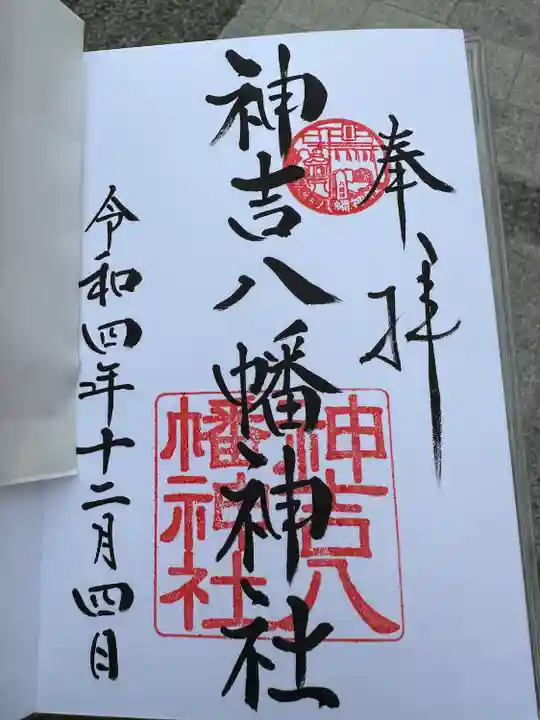 奉拝
神吉八幡神社
神吉八
幡神社
令和四年十二月四日